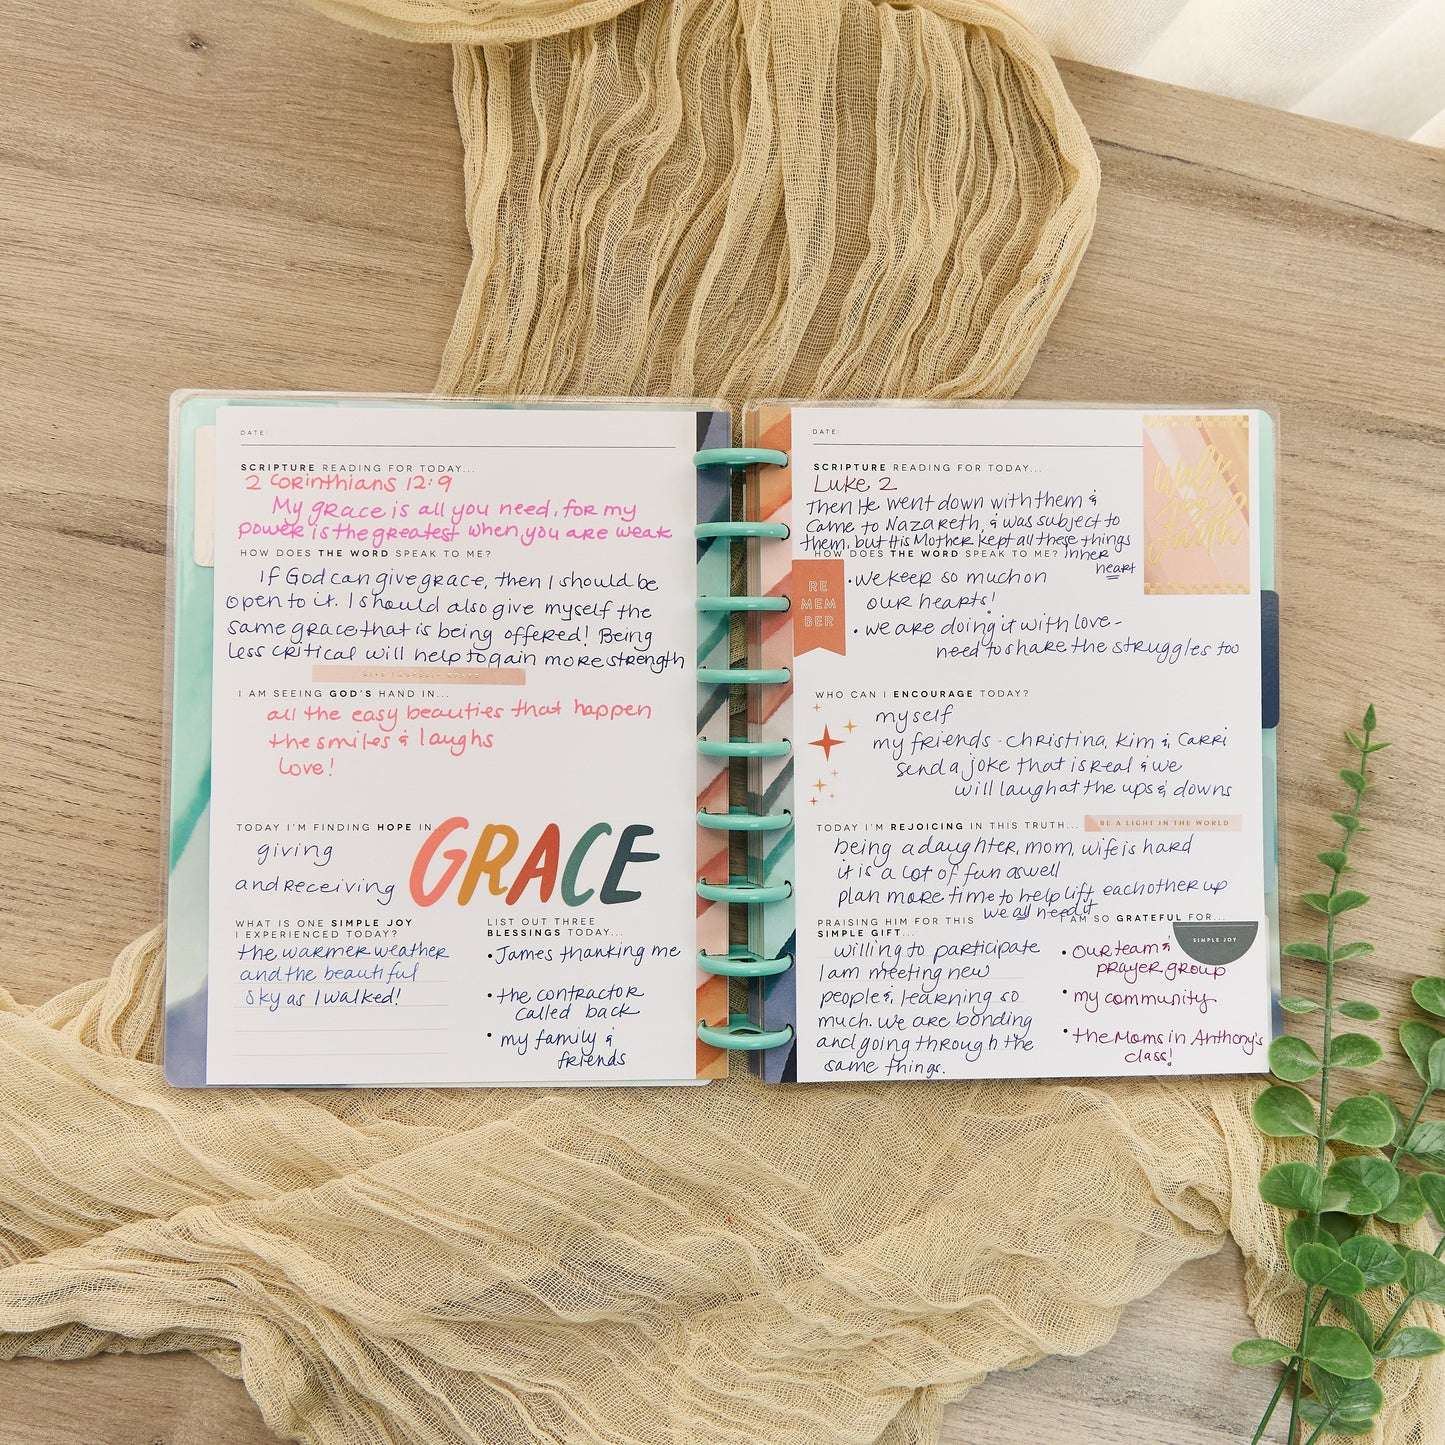 DATE:
SCRIPTURE READING FOR TODAY...
2 Corinthians 12:9
My grace is all you need, for my
power is the greatest when you are weak
HOW DOES THE WORD SPEAK TO ME?
If God can give grace, then I should be
open to it. I should also give myself the
same grace that is being offered! Being
less critical will help to gain more strength
GIVE YOURSELF GRACE
I AM SEEING GOD'S HAND IN...
all the easy beauties that happen
the smiles & laughs
Love!
TODAY I'M FINDING HOPE IN...
giving
and receiving
GRACE
WHAT IS ONE SIMPLE JOY
I EXPERIENCED TODAY?
the warmer weather
and the beautiful
sky as I walked!
LIST OUT THREE
BLESSINGS TODAY...
• James thanking me
• the contractor
called back
• my family &
friends
DATE:
SCRIPTURE READING FOR TODAY...
Luke 2
Then He went down with them &
came to Nazareth, & was subject to
them, but His Mother kept all these things
inner
heart
Walk by Faith
HOW DOES THE WORD SPEAK TO ME?
RE
MEM
BER
• we keep so much on
our hearts!
• we are doing it with love -
need to share the struggles too
WHO CAN I ENCOURAGE TODAY?
myself
my friends - christina, kim & Carri
send a joke that is real & we
will laugh at the ups & downs
TODAY I'M REJOICING IN THIS TRUTH...
BE A LIGHT IN THE WORLD
being a daughter, mom, wife is hard
it is a lot of fun as well
plan more time to help lift each other up
we all need it
PRAISING HIM FOR THIS
SIMPLE GIFT...
willing to participate
I am meeting new
people & learning so
much. we are bonding
and going through the
same things.
I AM SO GRATEFUL FOR...
SIMPLE JOY
• our team &
prayer group
• my community
• the Moms in Anthony's
class!